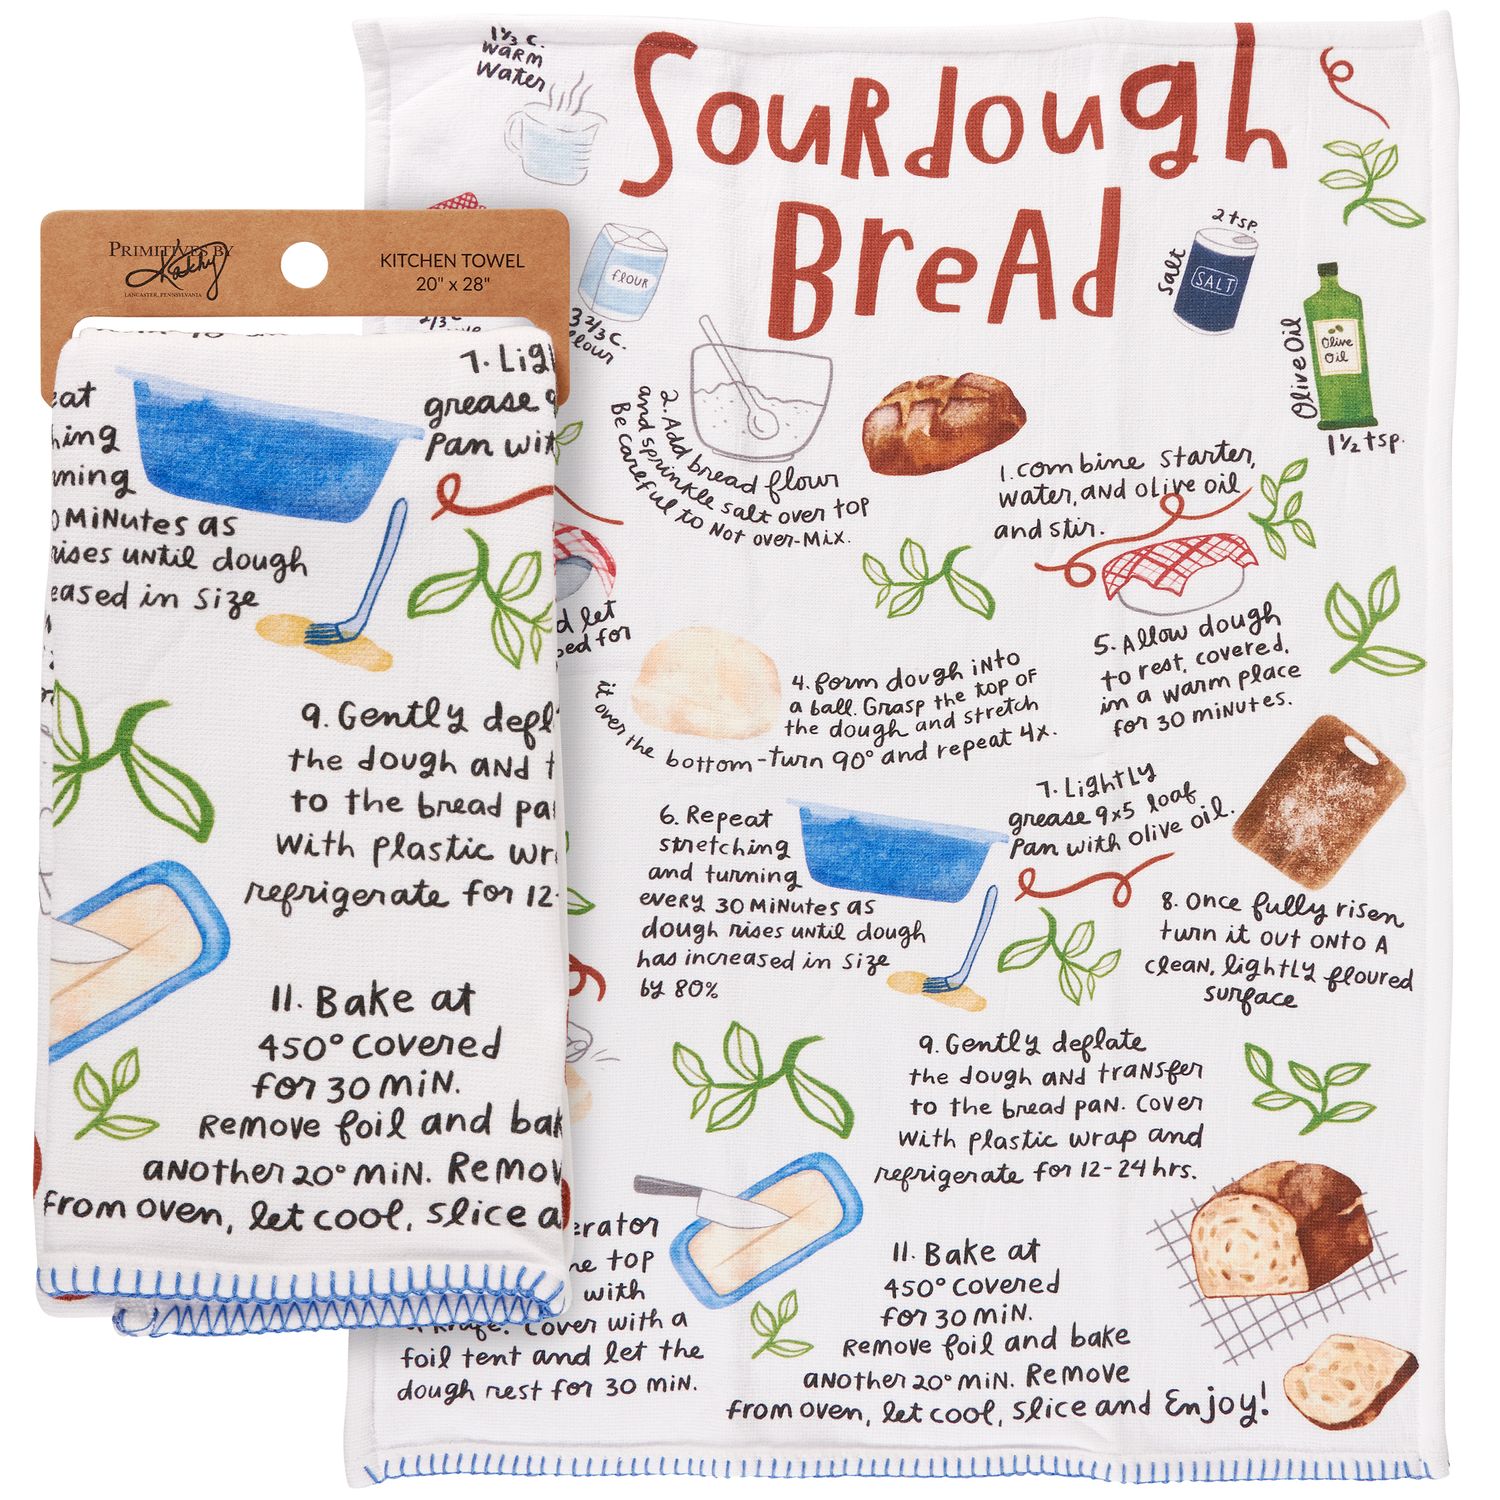 1 1/3 C.
WARM
Water
Sourdough
Bread
flour
3 2/3 C.
flour
2 tsp.
Salt
SALT
Olive Oil
Olive
Oil
1 1/2 tsp.
PRIMITIVES BY
Kathy
LANCASTER, PENNSYLVANIA
KITCHEN TOWEL
20" x 28"
2/3 C.
1. Combine starter,
water, and olive oil
and stir.
2. Add bread flour
and sprinkle salt over top
Be careful to Not over-mix.
let
for
4. Form dough into
a ball. Grasp the top of
the dough and stretch
it over the bottom-turn 90° and repeat 4x.
5. Allow dough
to rest, covered,
in a warm place
for 30 minutes.
6. Repeat
stretching
and turning
every 30 minutes as
dough rises until dough
has increased in size
by 80%
7. Lightly
grease 9x5 loaf
pan with olive oil.
8. Once fully risen
turn it out onto a
clean, lightly floured
surface
9. Gently deflate
the dough and transfer
to the bread pan. Cover
with plastic wrap and
refrigerate for 12-24 hrs.
erator
top
with
knife. Cover with a
foil tent and let the
dough rest for 30 min.
11. Bake at
450° covered
for 30 min.
Remove foil and bake
another 20° min. Remove
from oven, let cool, slice and Enjoy!
7. Lig
grease
pan wit
eat
hing
rning
0 minutes as
rises until dough
eased in size
9. Gently defl
the dough and t
to the bread pa
with plastic wr
refrigerate for 12-
11. Bake at
450° covered
for 30 min.
Remove foil and bak
another 20° min. Remov
from oven, let cool, slice a